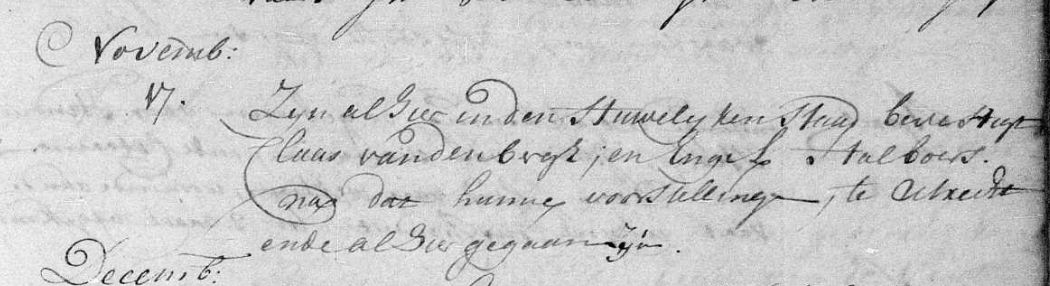 Novemb:
17. Zyn alhier in den Huwelyken Staad bevestigt
Claas van den brejk, en Engel Stalboers.
na dat hunne voorstellinge, te Utrecht
ende alhier gegaan zyn.
Decemb: